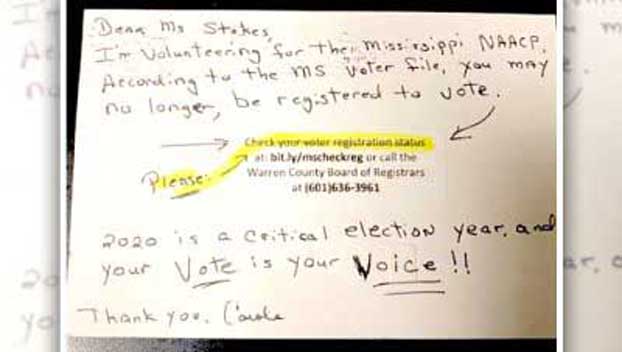 Dear Ms Stokes,
I'm volunteering for the Mississippi NAACP.
According to the MS voter file, you may
no longer, be registered to vote.
Check your voter registration status
at: bit.ly/mscheckreg or call the
Please:
Warren County Board of Registrars
at (601)636-3961
2020 is a critical election year, and
your Vote is your Voice!!
Thank you, Carole